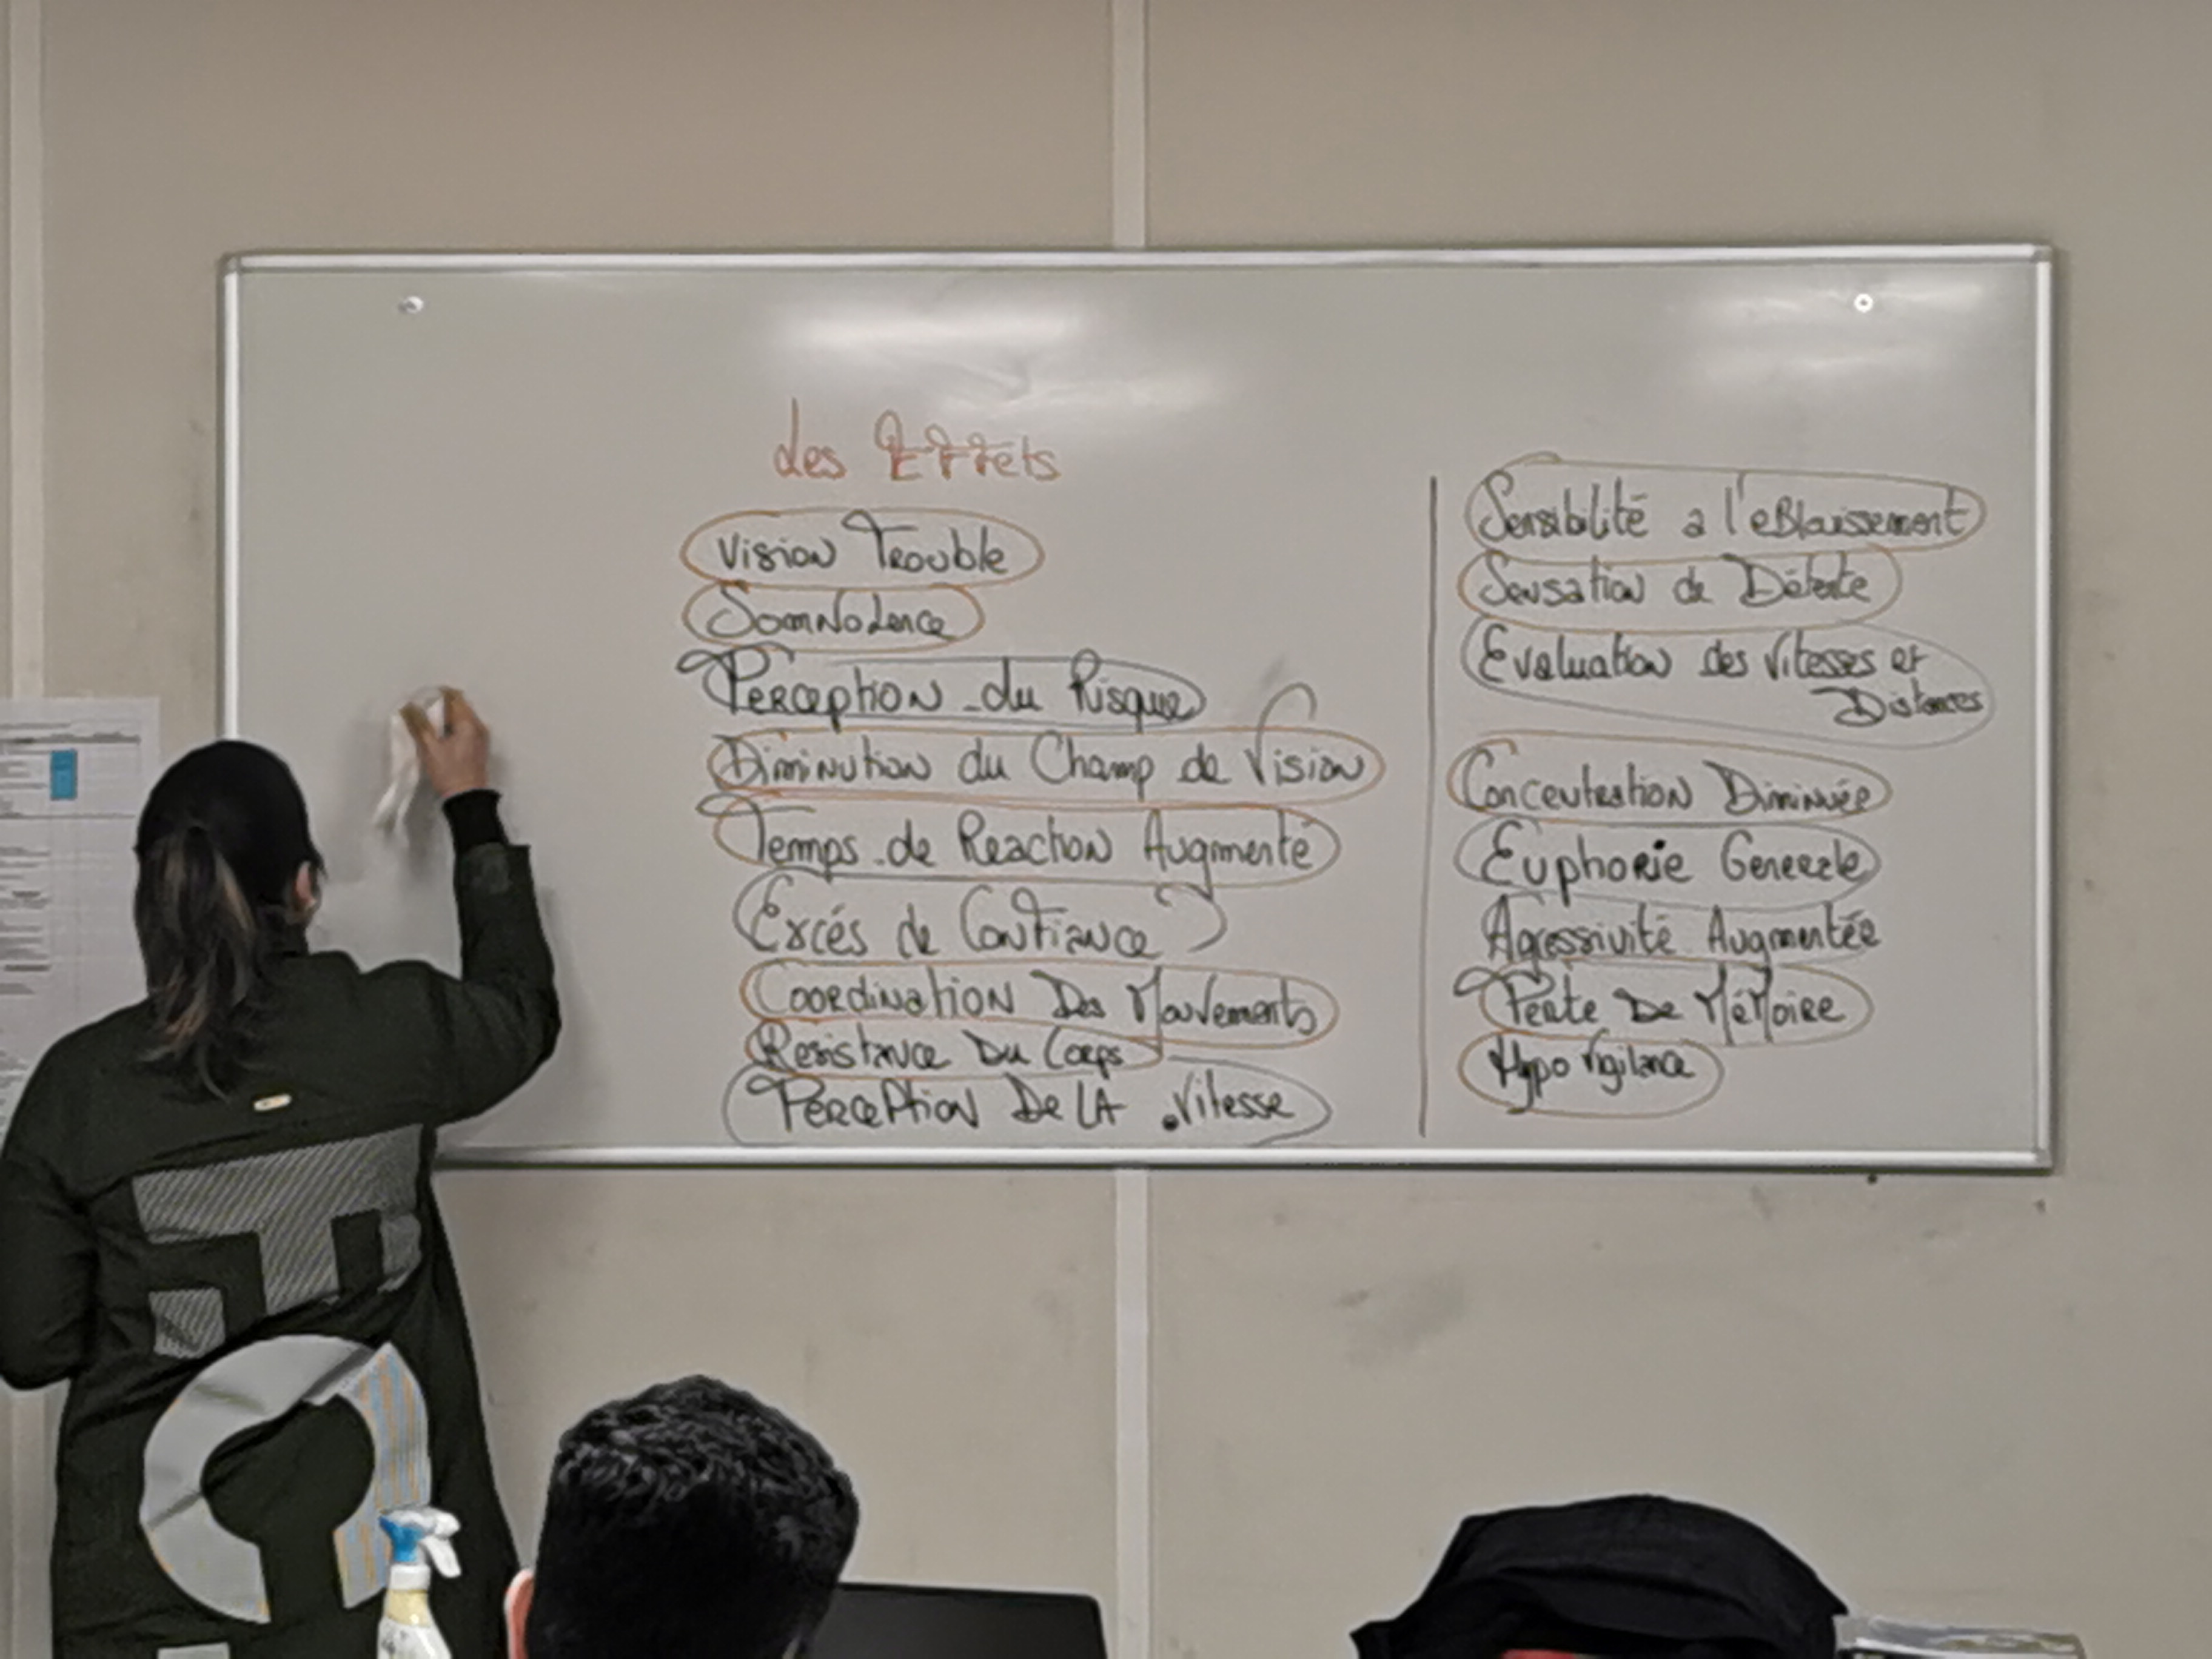 Les Effets
Vision Trouble
Somnolence
Perception du Risque
Diminution du Champ de Vision
Temps de Reaction Augmenté
Excés de Confiance
Coordination Des Mouvements
Resistance Du Corps
Perception De LA Vitesse
Sensibilité a l'eBlouissement
Sensation de Détente
Evaluation des Vitesses et
Distances
Concentration Diminuée
Euphorie Generale
Agressivité Augmentée
Perte De MéMoire
Hypo Vigilance